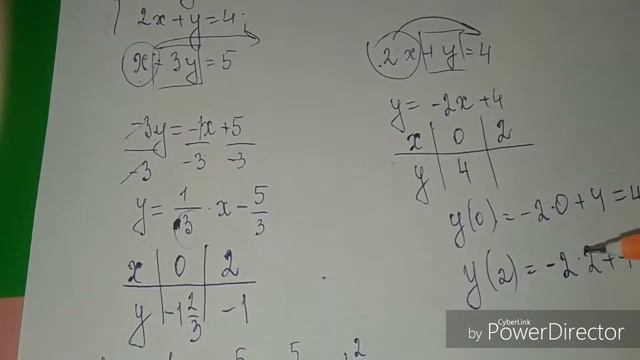 2x+y=4;
x-3y=5
-3y/-3 = -1x/-3 + 5/-3
y= 1/3 · x - 5/3
x | 0 | 2
y | -1 2/3 | -1
2x+y=4
y= -2x+4
x | 0 | 2
y | 4 |
y(0)=-2·0+4=4
y(2)=-2·2+
CyberLink
by PowerDirector